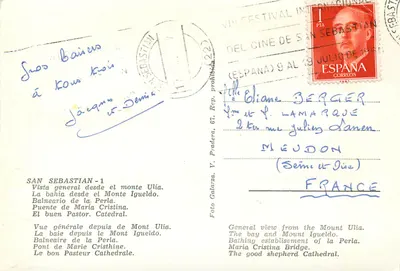 SAN SEBASTIAN
VIII FESTIVAL INTERNACIONAL
DEL CINE DE SAN SEBASTIAN
(ESPAÑA) 9 AL 19 JULIO DE
1 PTA
ESPAÑA
CORREOS
Gros baisers
à tous trois
Jacques
et Denise
Elle Eliane BERGER
et LAMARQUE
2 rue Julien
MEUDON
(Seine et Oise)
FRANCE
Foto Galarza. V. Pradera, 67. Rep. prohibida
SAN SEBASTIAN - 1
Vista general desde el monte Ulía.
La bahía desde el Monte Igueldo.
Balneario de la Perla.
Puente de María Cristina.
El buen Pastor. Catedral.
Vue générale depuis de Mont Ulía.
La baie depuis le Mont Igueldo.
Balnesire de la Perla.
Pont de Marie Christine.
Le bon Pasteur Cathedrale.
General view from the Mount Ulía.
The bay and Mount Igueldo.
Bathing establisement of la Perla.
Maria Cristina Bridge.
The good shepherd Cathedral.